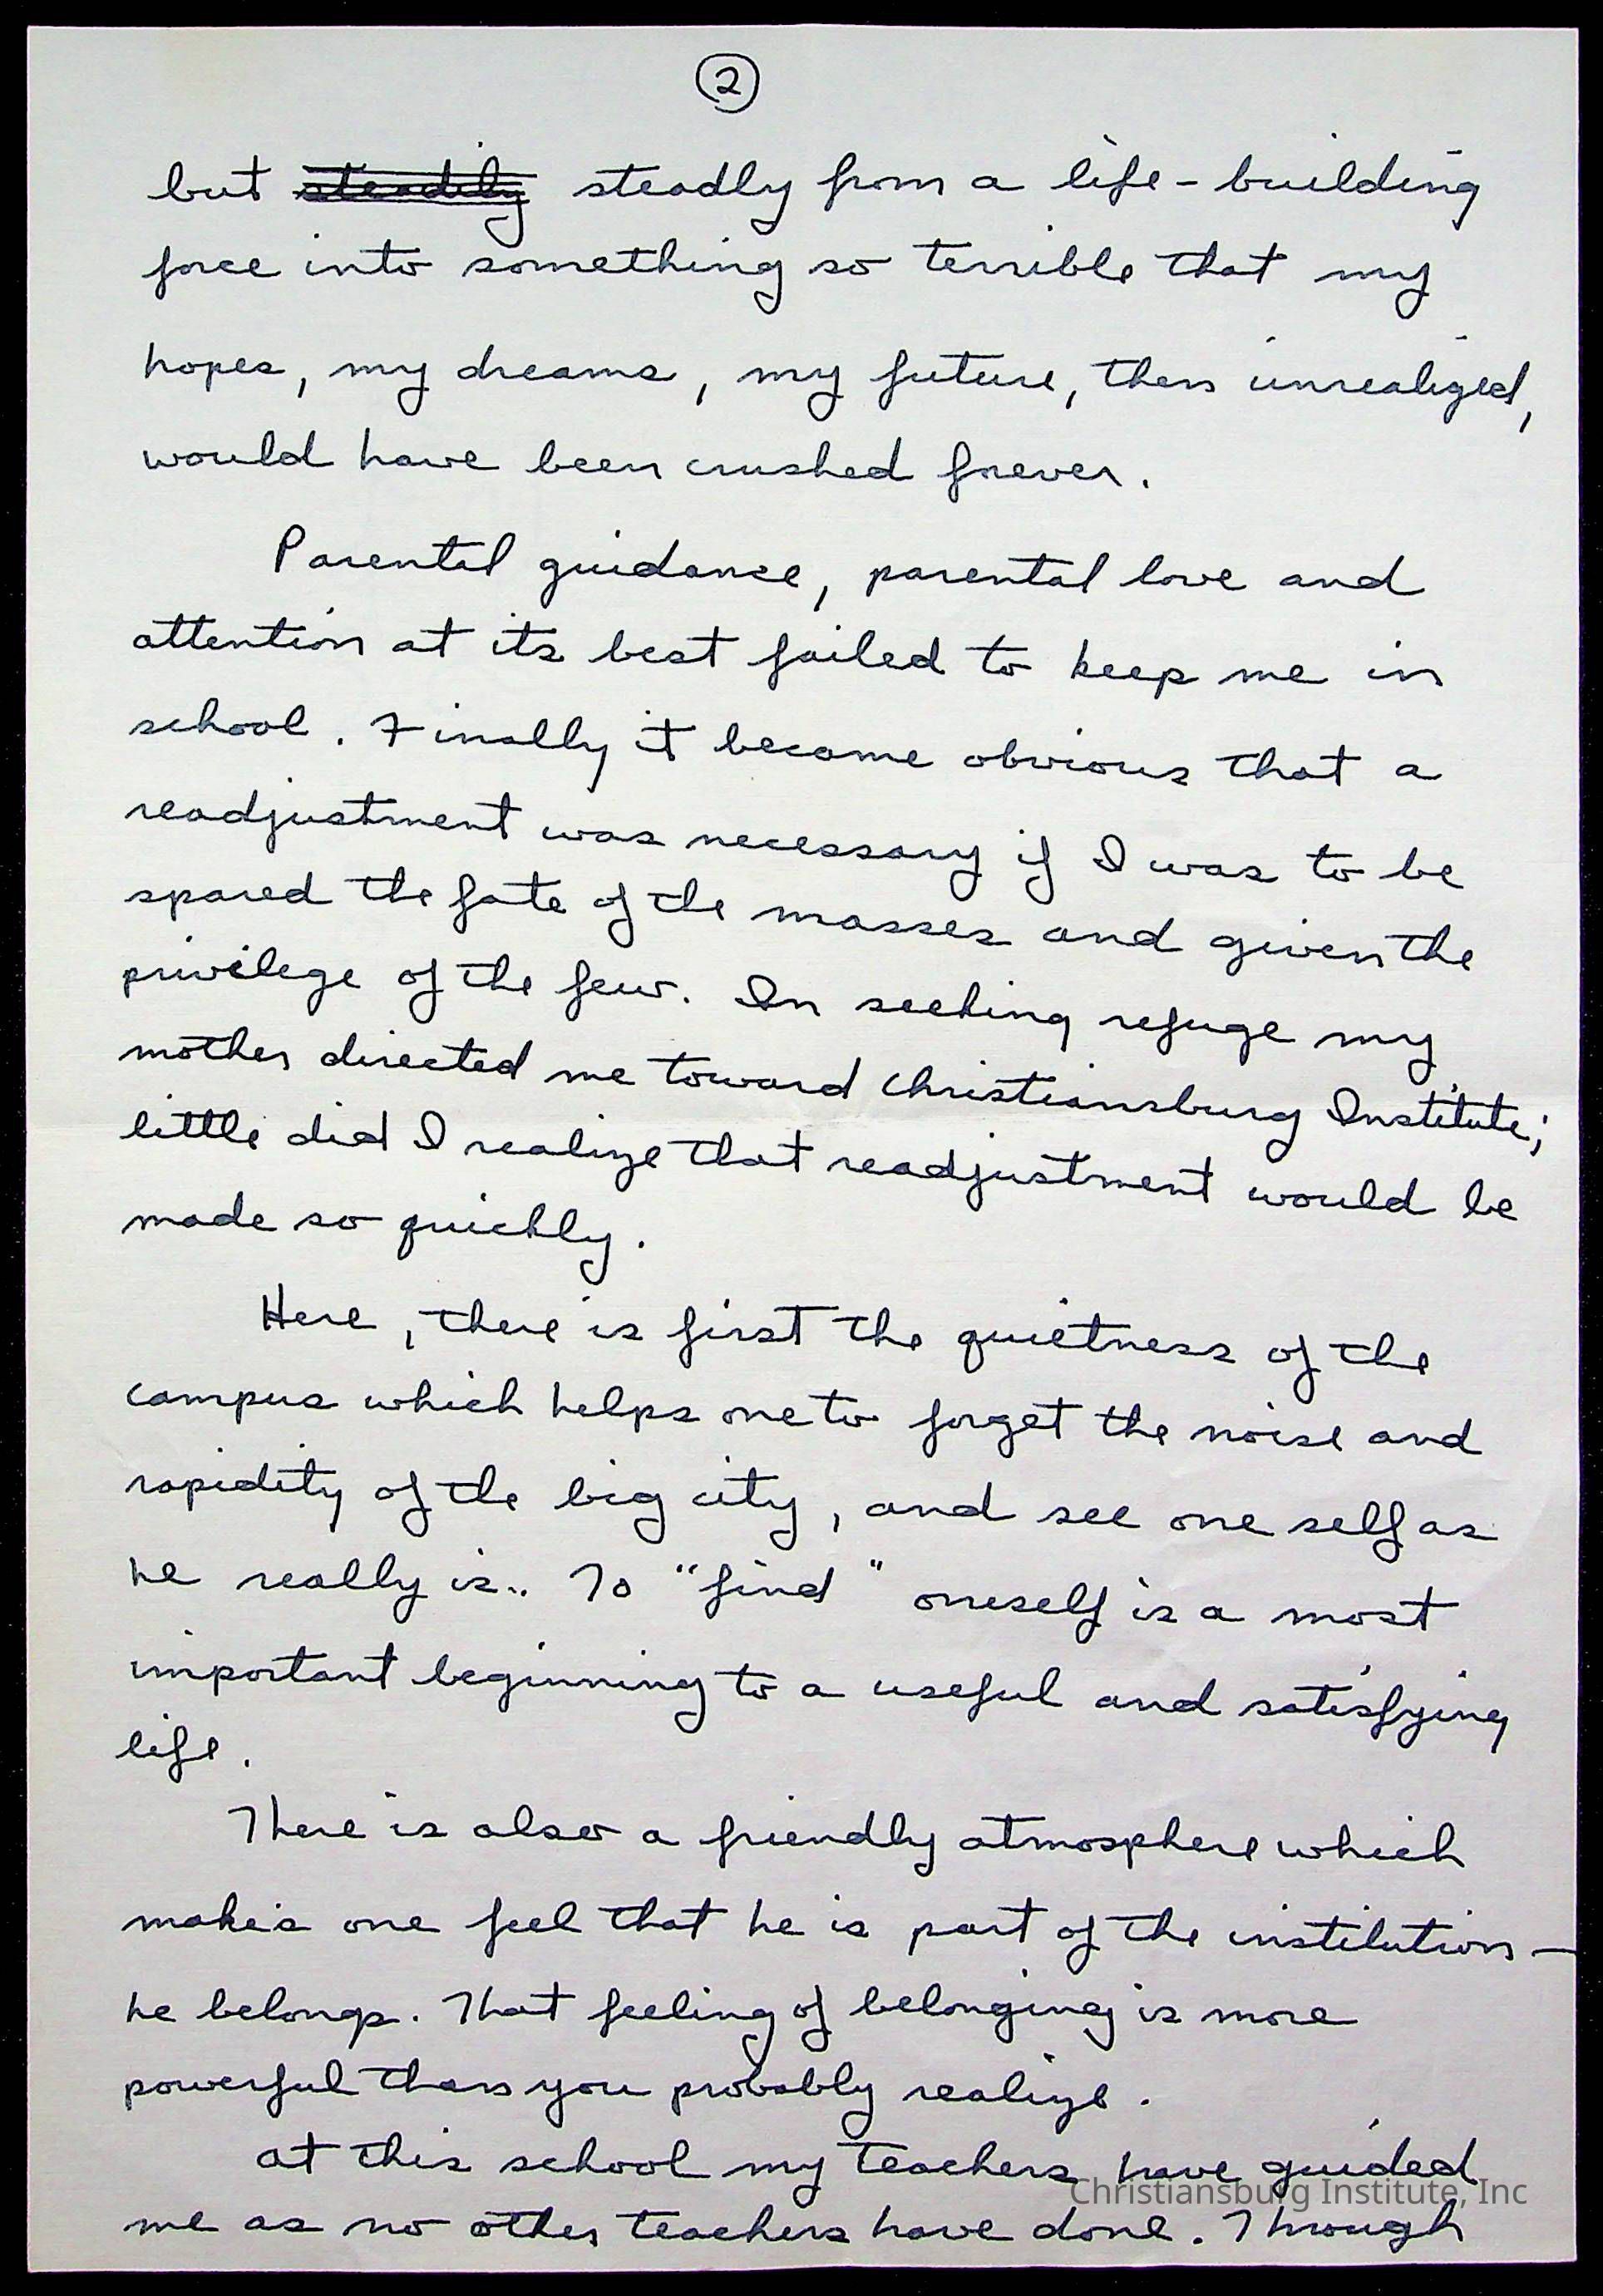 2
but steadily steadly from a life-building
force into something so terrible that my
hopes, my dreams, my future, then unrealized,
would have been crushed forever.
Parental guidance, parental love and
attention at its best failed to keep me in
school. Finally it became obvious that a
readjustment was necessary if I was to be
spared the fate of the masses and given the
privilege of the few. In seeking refuge my
mother directed me toward Christiansburg Institute;
little did I realize that readjustment would be
made so quickly.
Here, there is first the quietness of the
campus which helps one to forget the noise and
rapidity of the big city, and see one self as
he really is.. To "find" oneself is a most
important beginning to a useful and satisfying
life.
There is also a friendly atmosphere which
makes one feel that he is part of the institution—
he belongs. That feeling of belonging is more
powerful than you probably realize.
At this school my teachers have guided
Christiansburg Institute, Inc
me as no other teachers have done. Through